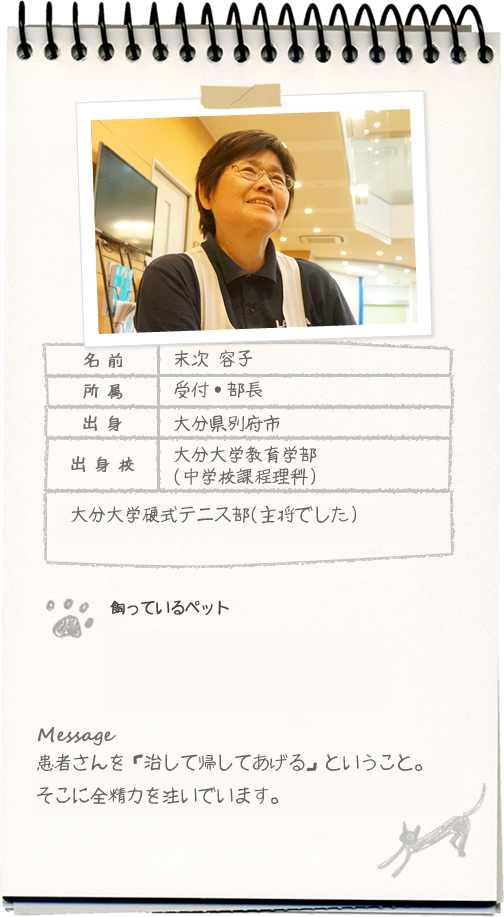 名前 末次 容子
所属 受付・部長
出身 大分県別府市
出身校 大分大学教育学部
(中学校課程理科)
大分大学硬式テニス部(主将でした)
飼っているペット
Message
患者さんを『治して帰してあげる』ということ。
そこに全精力を注いでいます。